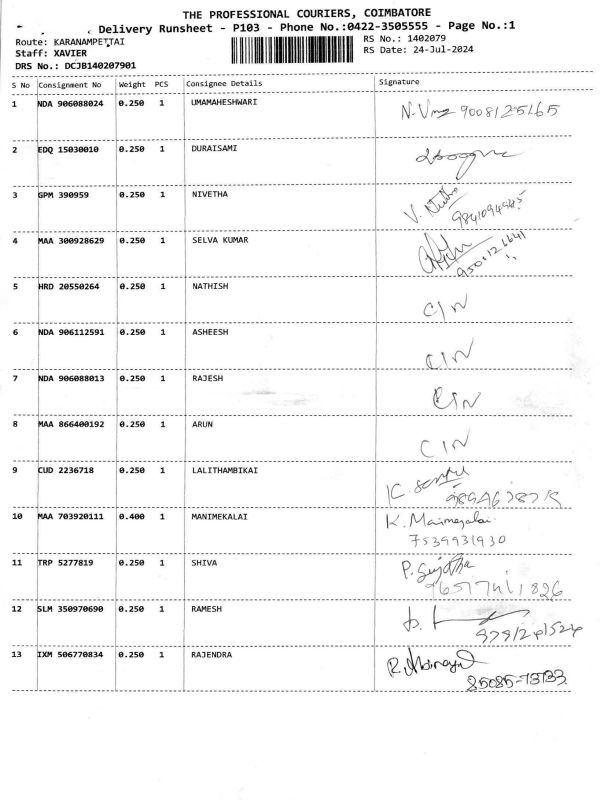 THE PROFESSIONAL COURIERS, COIMBATORE
Delivery Runsheet - P103 - Phone No.:0422-3505555 - Page No.:1
Route: KARANAMPETTAI RS No.: 1402079
Staff: XAVIER RS Date: 24-Jul-2024
DRS No.: DCJB140207901
S No Consignment No Weight PCS Consignee Details Signature
1 NDA 906088024 0.250 1 UMAMAHESHWARI 9008125165
2 EDQ 15030010 0.250 1 DURAISAMI
3 GPM 390959 0.250 1 NIVETHA V.
4 MAA 300928629 0.250 1 SELVA KUMAR
5 HRD 20550264 0.250 1 NATHISH C/N
6 NDA 906112591 0.250 1 ASHEESH C/N
7 NDA 906088013 0.250 1 RAJESH C/N
8 MAA 866400192 0.250 1 ARUN C/N
9 CUD 2236718 0.250 1 LALITHAMBIKAI K.
10 MAA 703920111 0.400 1 MANIMEKALAI K. Manimegalai
7539931930
11 TRP 5277819 0.250 1 SHIVA P. Sujatha
12 SLM 350970690 0.250 1 RAMESH
13 IXM 506770834 0.250 1 RAJENDRA R.
85085-73733